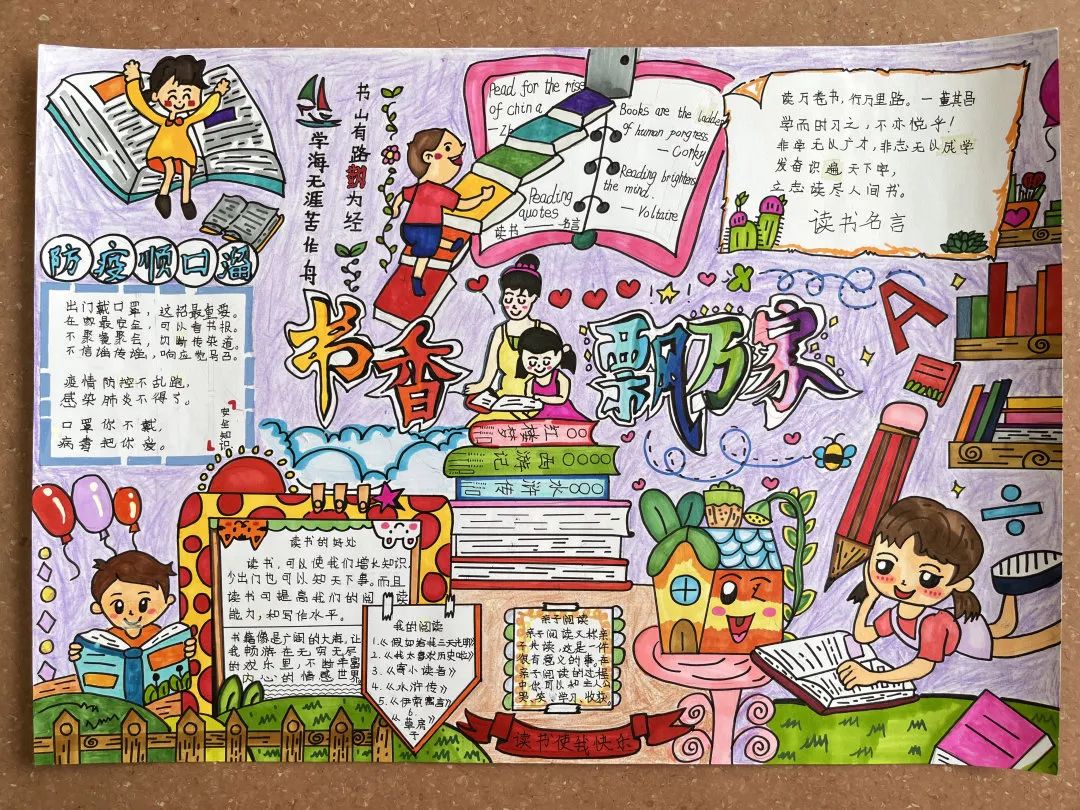 书山有路勤为径
学海无涯苦作舟
Pead for the rise
of china
Books are the ladder
of human porgress
— Gorky
Reading brightens
the mind.
— Voltaire
Peading
quotes
读书——名言
读万卷书，行万里路。—董其昌
学而时习之，不亦悦乎！
非学无以广才，非志无以成学
发奋识遍天下字，
立志读尽人间书。
读书名言
防疫顺口溜
出门戴口罩，这招最重要。
在家最安全，可以看书报。
不聚餐聚会，切断传染道。
不信谣传谣，响应党号召。
疫情防控不乱跑，
感染肺炎不得了。
口罩你不戴，
病毒把你爱。
书香飘万家
A
红楼梦
西游记
水浒传
读书的好处
读书，可以使我们增长知识，
少出门也可以知天下事。而且
读书可提高我们的阅读
能力，和写作水平。
书籍像是广阔的大海，让
我畅游在无穷无尽
的欢乐里，不断丰富
内心的情感世界
我的阅读
1.《假如给我三天光明》
2.《我太喜欢历史啦》
3.《寄小读者》
4.《水浒传》
5.《伊索寓言》
6
《草房子》
亲子阅读
亲子阅读又称亲
子共读，这是一件
很有意义的事。在
亲子阅读的过程
中你可以和主人公
学习
收获
读书使我快乐